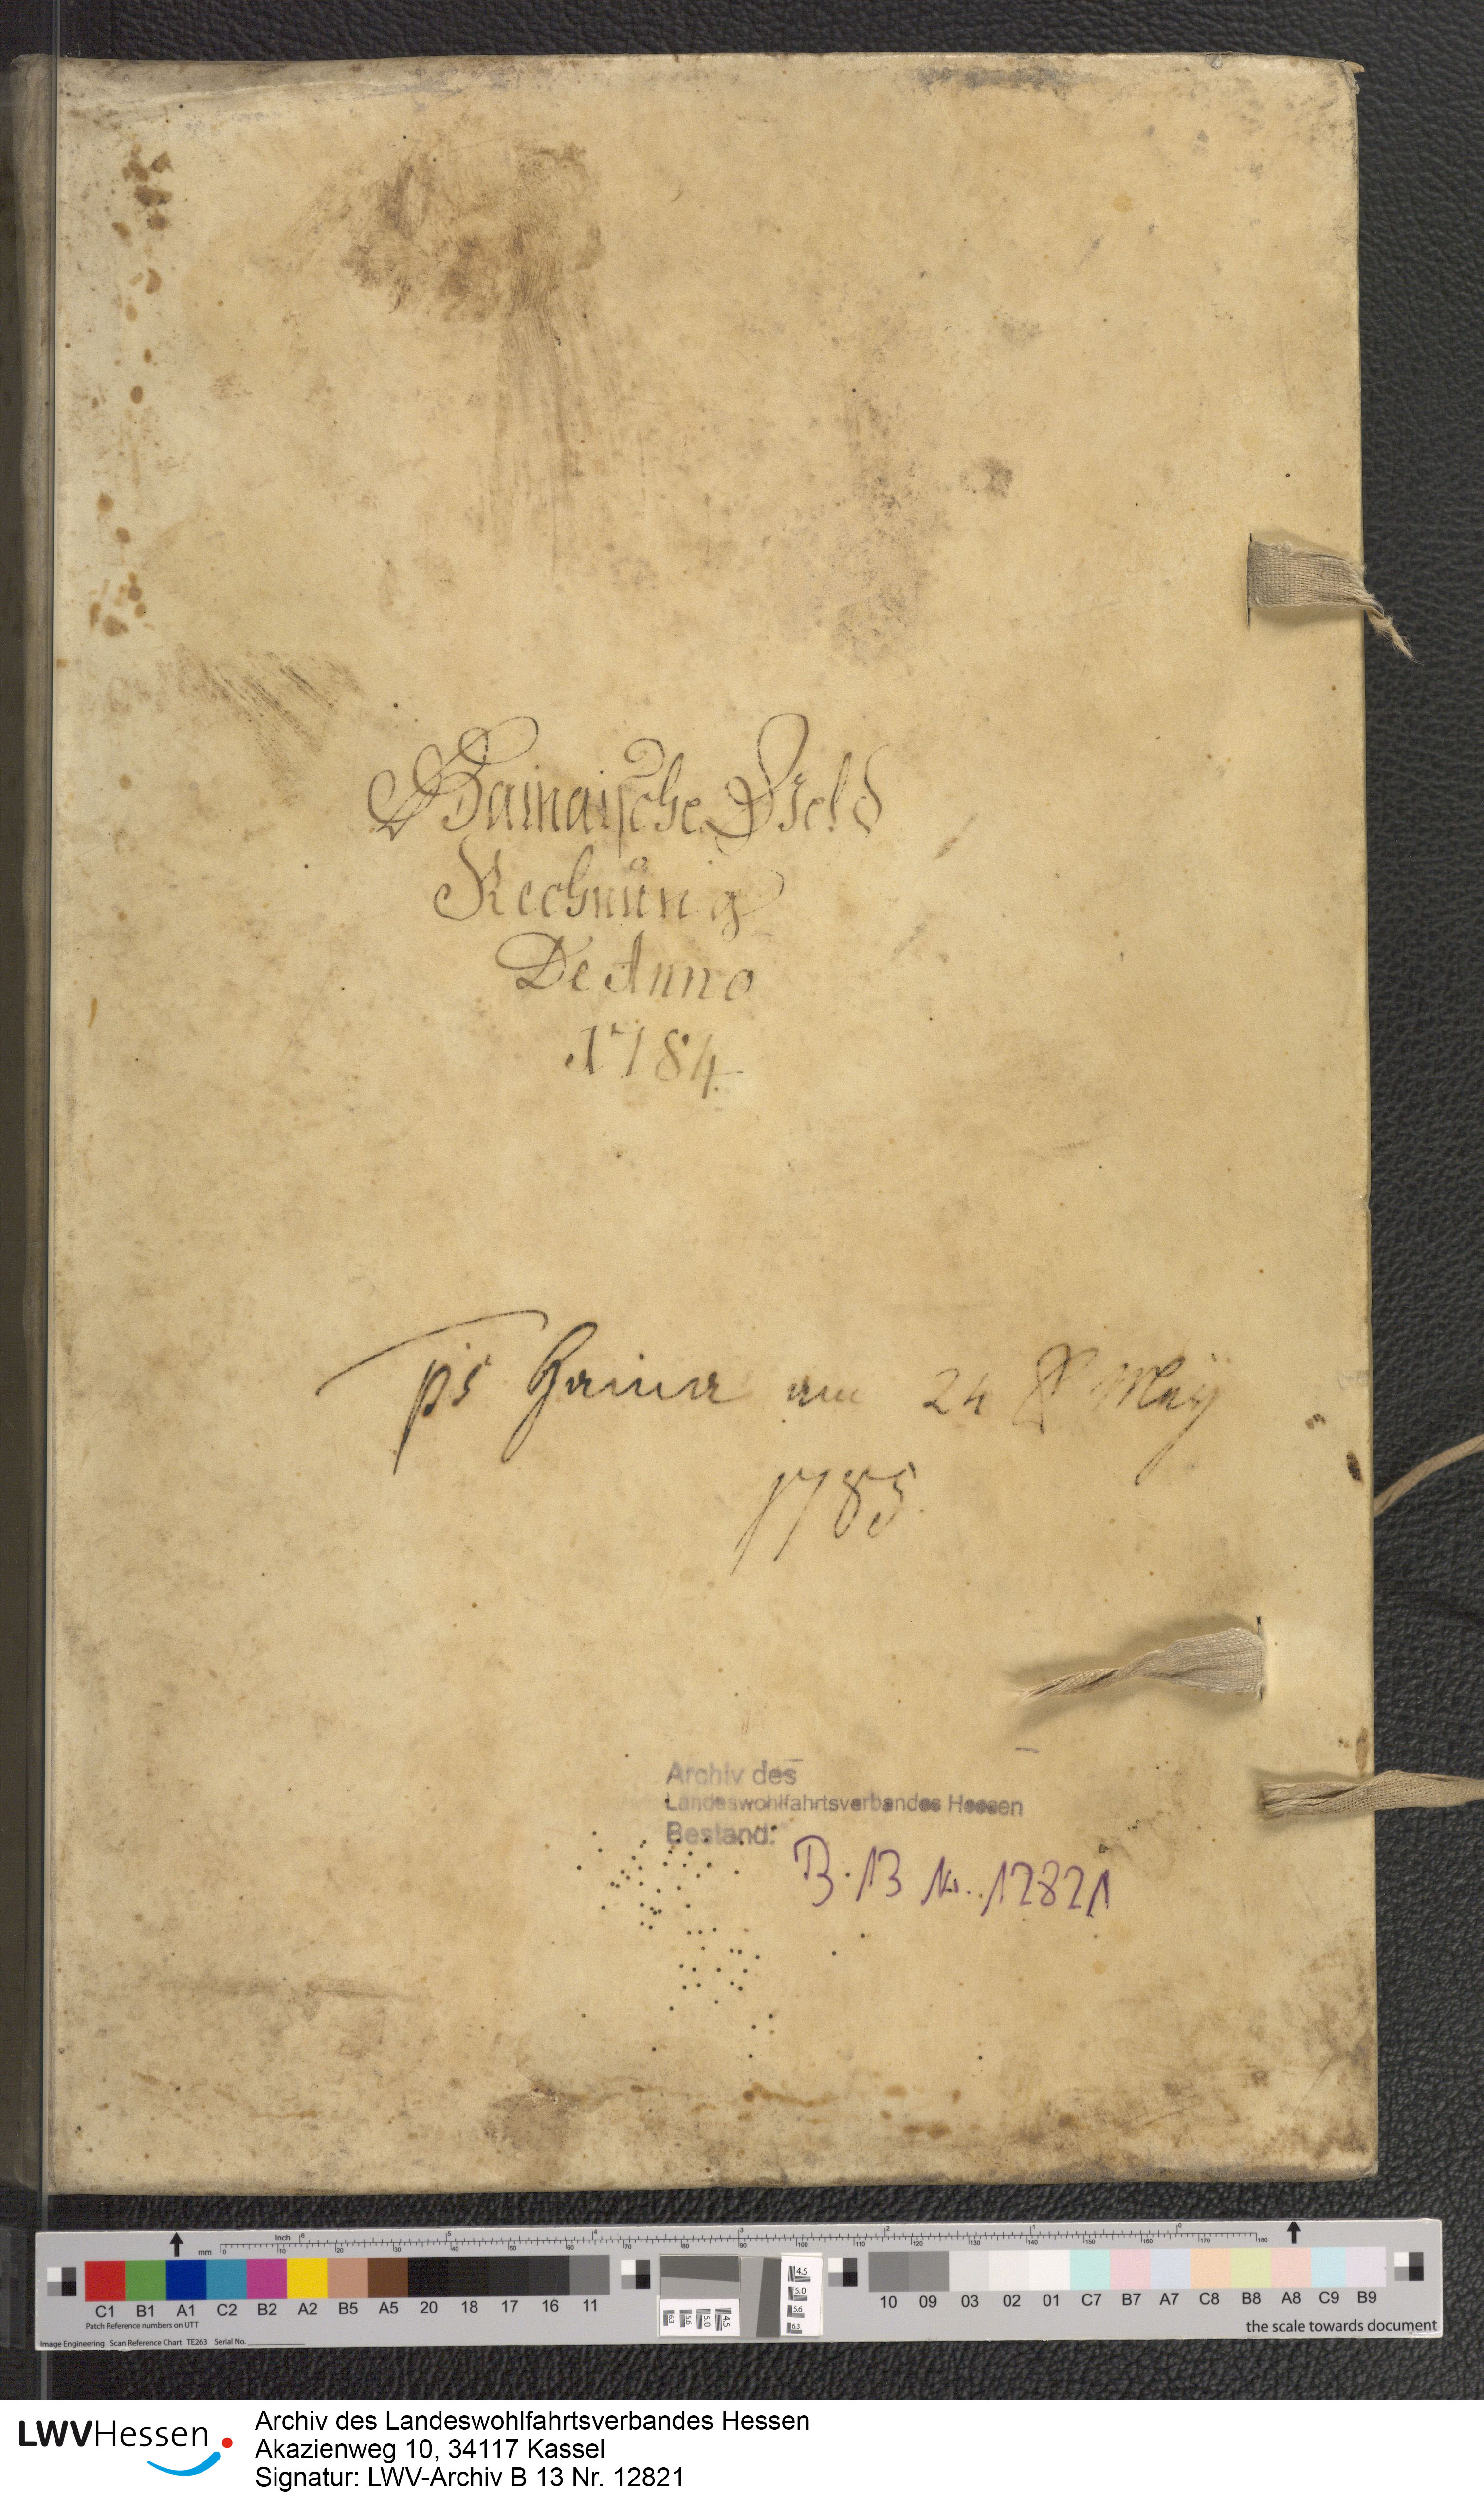 Hainaische Geld
Rechnung
De Anno
1784.
ps Haina am 24 May
1785.
Archiv des
Landeswohlfahrtsverbandes Hessen
Bestand:
B. 13 Nr. 12821
Inch
mm
C1 B1 A1 C2 B2 A2 B5 A5 20 18 17 16 11 10 09 03 02 01 C7 B7 A7 C8 B8 A8 C9 B9
Patch Reference numbers on UTT
the scale towards document
Image Engineering Scan Reference Chart TE263 Serial No.
LWVHessen
Archiv des Landeswohlfahrtsverbandes Hessen
Akazienweg 10, 34117 Kassel
Signatur: LWV-Archiv B 13 Nr. 12821